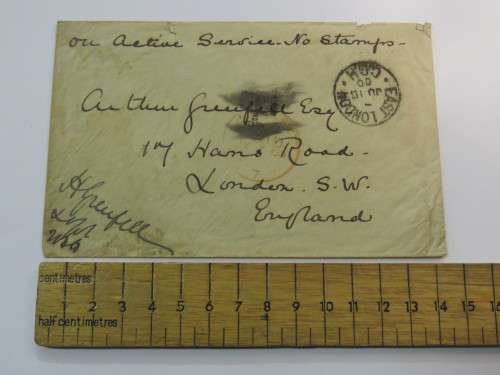 on Active Service - No Stamps -
Arthur Grenfell Esq
17 Hans Road -
London. S.W.
England
AGrenfell
EAST LONDON
C.G.H
JU 18
00
centimetres
1 2 3 4 5 6 7 8 9 10 11 12 13 14 15 16
half centimetres